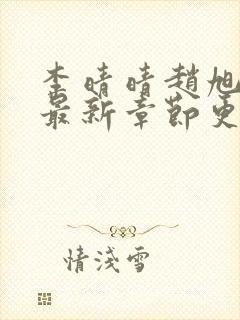 李晴晴趙旭
最新章節更
情淺雪